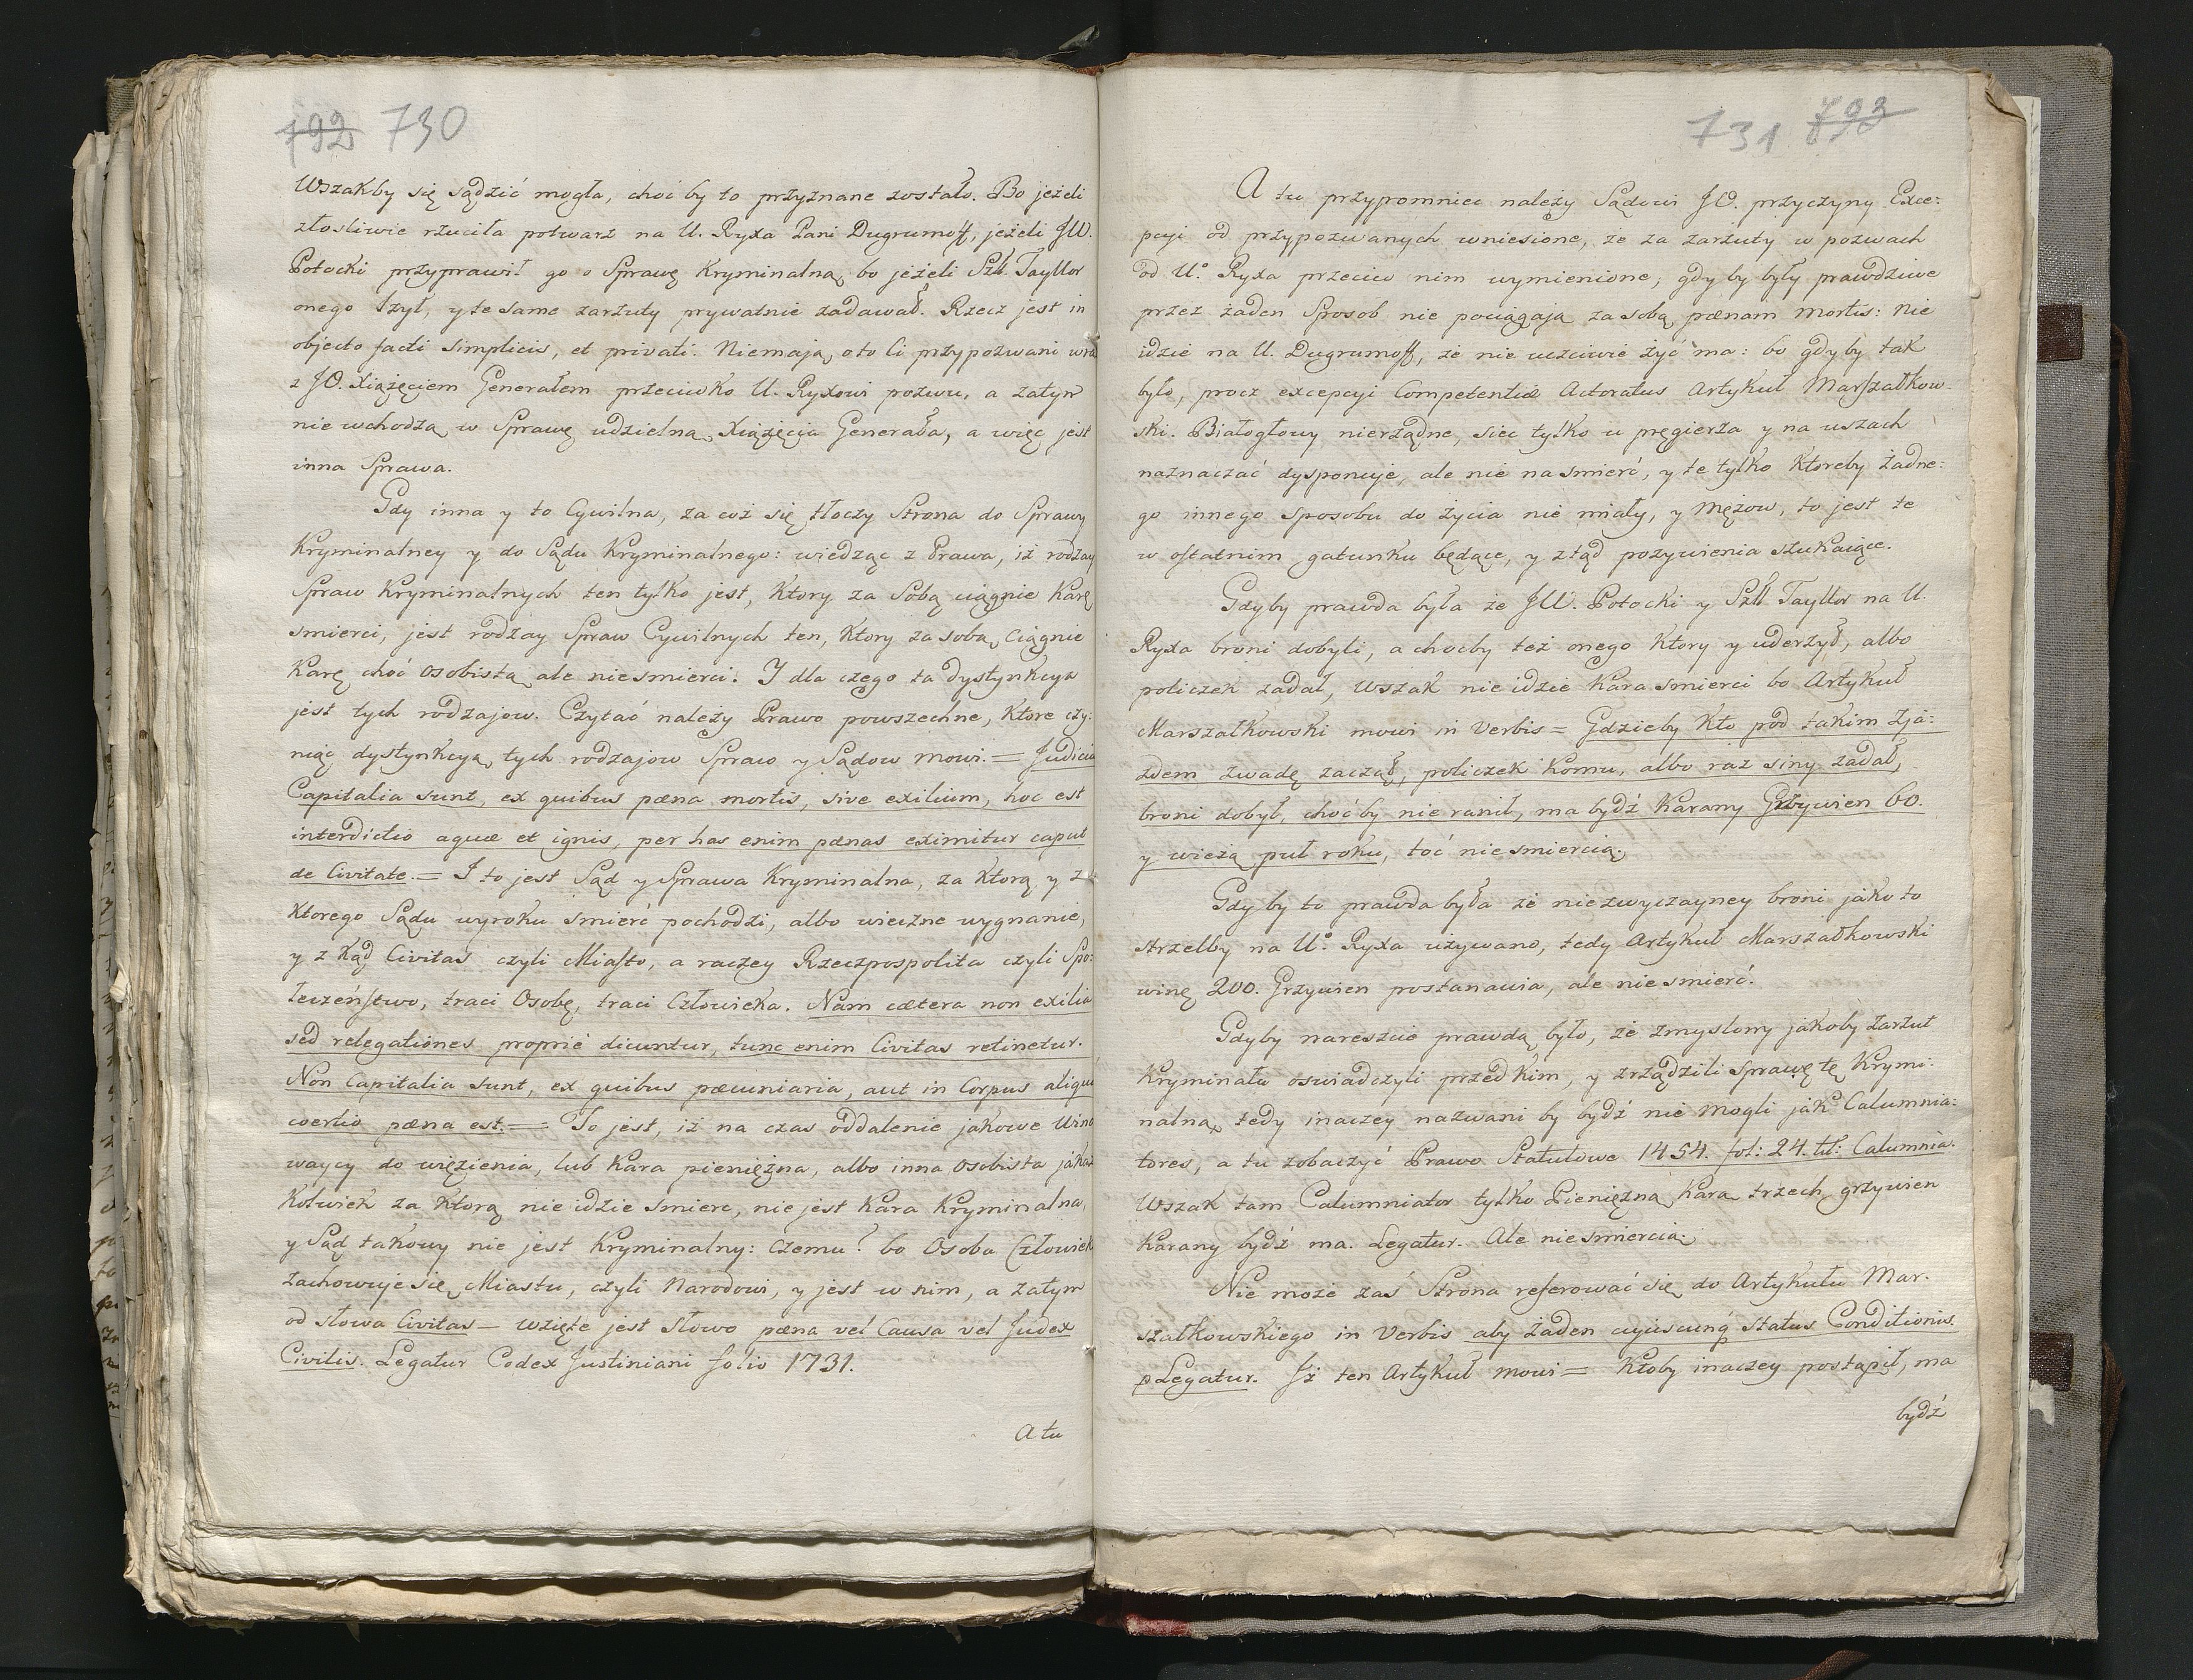 792 730
Wszakby się sądzić mogła, choć by to przyznane zostało. Bo jeżeli
złosliwie rzuciła potwarz na U. Ryxa Pani Dugrumoff, jeżeli JW.
Potocki przyprawił go o Sprawę Kryminalną, bo jeżeli Szl. Tayllor
onego łżył, y te same zarzuty prywatnie zadawał. Rzecz jest in
objecto facti simplicis, et privati. Niemają oto ci przypozwani wraz
z JO. Xiążęciem Generałem przeciwko U. Ryxowi pozwu, a zatym
nie wchodzą w Sprawę udzielną Xiążęcia Generała, a więc jest
inna Sprawa.
Gdy inna y to Cywilna, za coż się tłoczy Strona do Sprawy
Kryminalney y do Sądu Kryminalnego: wiedząc z Prawa, iż rodzay
Spraw Kryminalnych ten tylko jest, Ktory za Sobą ciągnie Karę
smierci, jest rodzay Spraw Cywilnych ten, Ktory za sobą ciągnie
Karę choć osobistą ale nie smierci. I dla czego ta dystynkcya
jest tych rodzajow. Czytać należy Prawo powszechne, Ktore czy:
niąc dystynkcyą tych rodzajow Spraw y Sądow mowi. = Judicia
Capitalia sunt, ex quibus pœna mortis, sive exilium, hoc est
interdictio aquæ et ignis, per has enim pœnas eximitur caput
de Civitate. = I to jest Sąd y Sprawa Kryminalna, za Ktorą y z
Ktorego Sądu wyroku smierć pochodzi, albo wieczne wygnanie,
y z Kąd Civitas czyli Miasto, a raczey Rzeczpospolita czyli Spo:
łeczeństwo, traci Osobę, traci Człowieka. Nam cætera non exilia
sed relegationes proprié dicuntur, tunc enim Civitas retinetur.
Non Capitalia sunt, ex quibus pæcuniaria, aut in Corpus aliqua
coertio pœna est. = To jest, iż na czas oddalenie jakowe Wino
waycy do więzienia, lub Kara pieniężna, albo inna osobista jakaż
Kolwiek za Ktorą nie idzie smierc, nie jest Kara Kryminalna,
y Sąd takowy nie jest Kryminalny: Czemu? bo Osoba Człowiek
zachowuje się Miastu, czyli Narodowi, y jest w nim, a zatym
od słowa Civitas – wzięte jest słowo pœna vel Causa vel Judex
Civilis. Legatur Codex Justiniani folio 1731.
A tu
731 793
A tu przypomniec należy Sądowi JO. przyczyny Exce:
pcyi od przypozwanych wniesione, że za zarzuty w pozwach
od U.º Ryxa przeciw nim wymienione, gdy by były prawdziwe
przez żaden Sposob nie pociągają za sobą pœnam mortis: Nie
idzie na U. Dugrumoff, że nie uczciwie żyć ma: bo gdyby tak
było, procz excepcyi Competentiæ Actoratus Artykuł Marszałkow-
ski. Białogłowy nierządne, siec tylko u pręgierza y na uszach
naznaczać dysponuje, ale nie na smierć, y te tylko Ktoreby żadne:
go innego sposobu do życia nie miały, y Mężow, to jest te
w ostatnim gatunku będące, y ztąd pożywienia szukaiące.
Gdyby prawda była że JW. Potocki y Szl. Tayllor na U.
Ryxa broni dobyli, a chocby też onego Ktory y uderzył, albo
policzek zadał, wszak nie idzie Kara smierci bo Artykuł
Marszałkowski mowi in Verbis = Gdzieby Kto pod takim zja:
zdem zwadę zaczął, policzek Komu, albo raz siny zadał,
broni dobył, choć by nie ranił, ma bydź Karany Grzywien 60.
y wieżą puł roku, toć nie smiercią.
Gdy by to prawda była że niezwyczayney broni jako to
strzelby na U.º Ryxa używano, tedy Artykuł Marszałkowski
winę 200. Grzywien postanawia, ale nie smierć.
Gdyby nareszcie prawdą było, że zmyslony jakoby zarzut
Kryminału oswiadczyli przed kim, y zrządzili sprawę tę Krymi:
nalną, tedy inaczey nazwani by bydź nie mogli jako Calumnia:
tores, a tu zobaczyć Prawo Statutowe 1454. fol: 24. tit: Calumnia.
Wszak tam Calumniator tylko Pienięzną Karą trzech grzywien
Karany bydź ma. Legatur. Ale nie smiercią.
Nie może zaś Strona referować się do Artykułu Mar.
szałkowskiego in Verbis aby żaden cujuscunq status Conditionis.
Legatur. Iż ten Artykuł mowi = Ktoby inaczey postąpił, ma
bydź